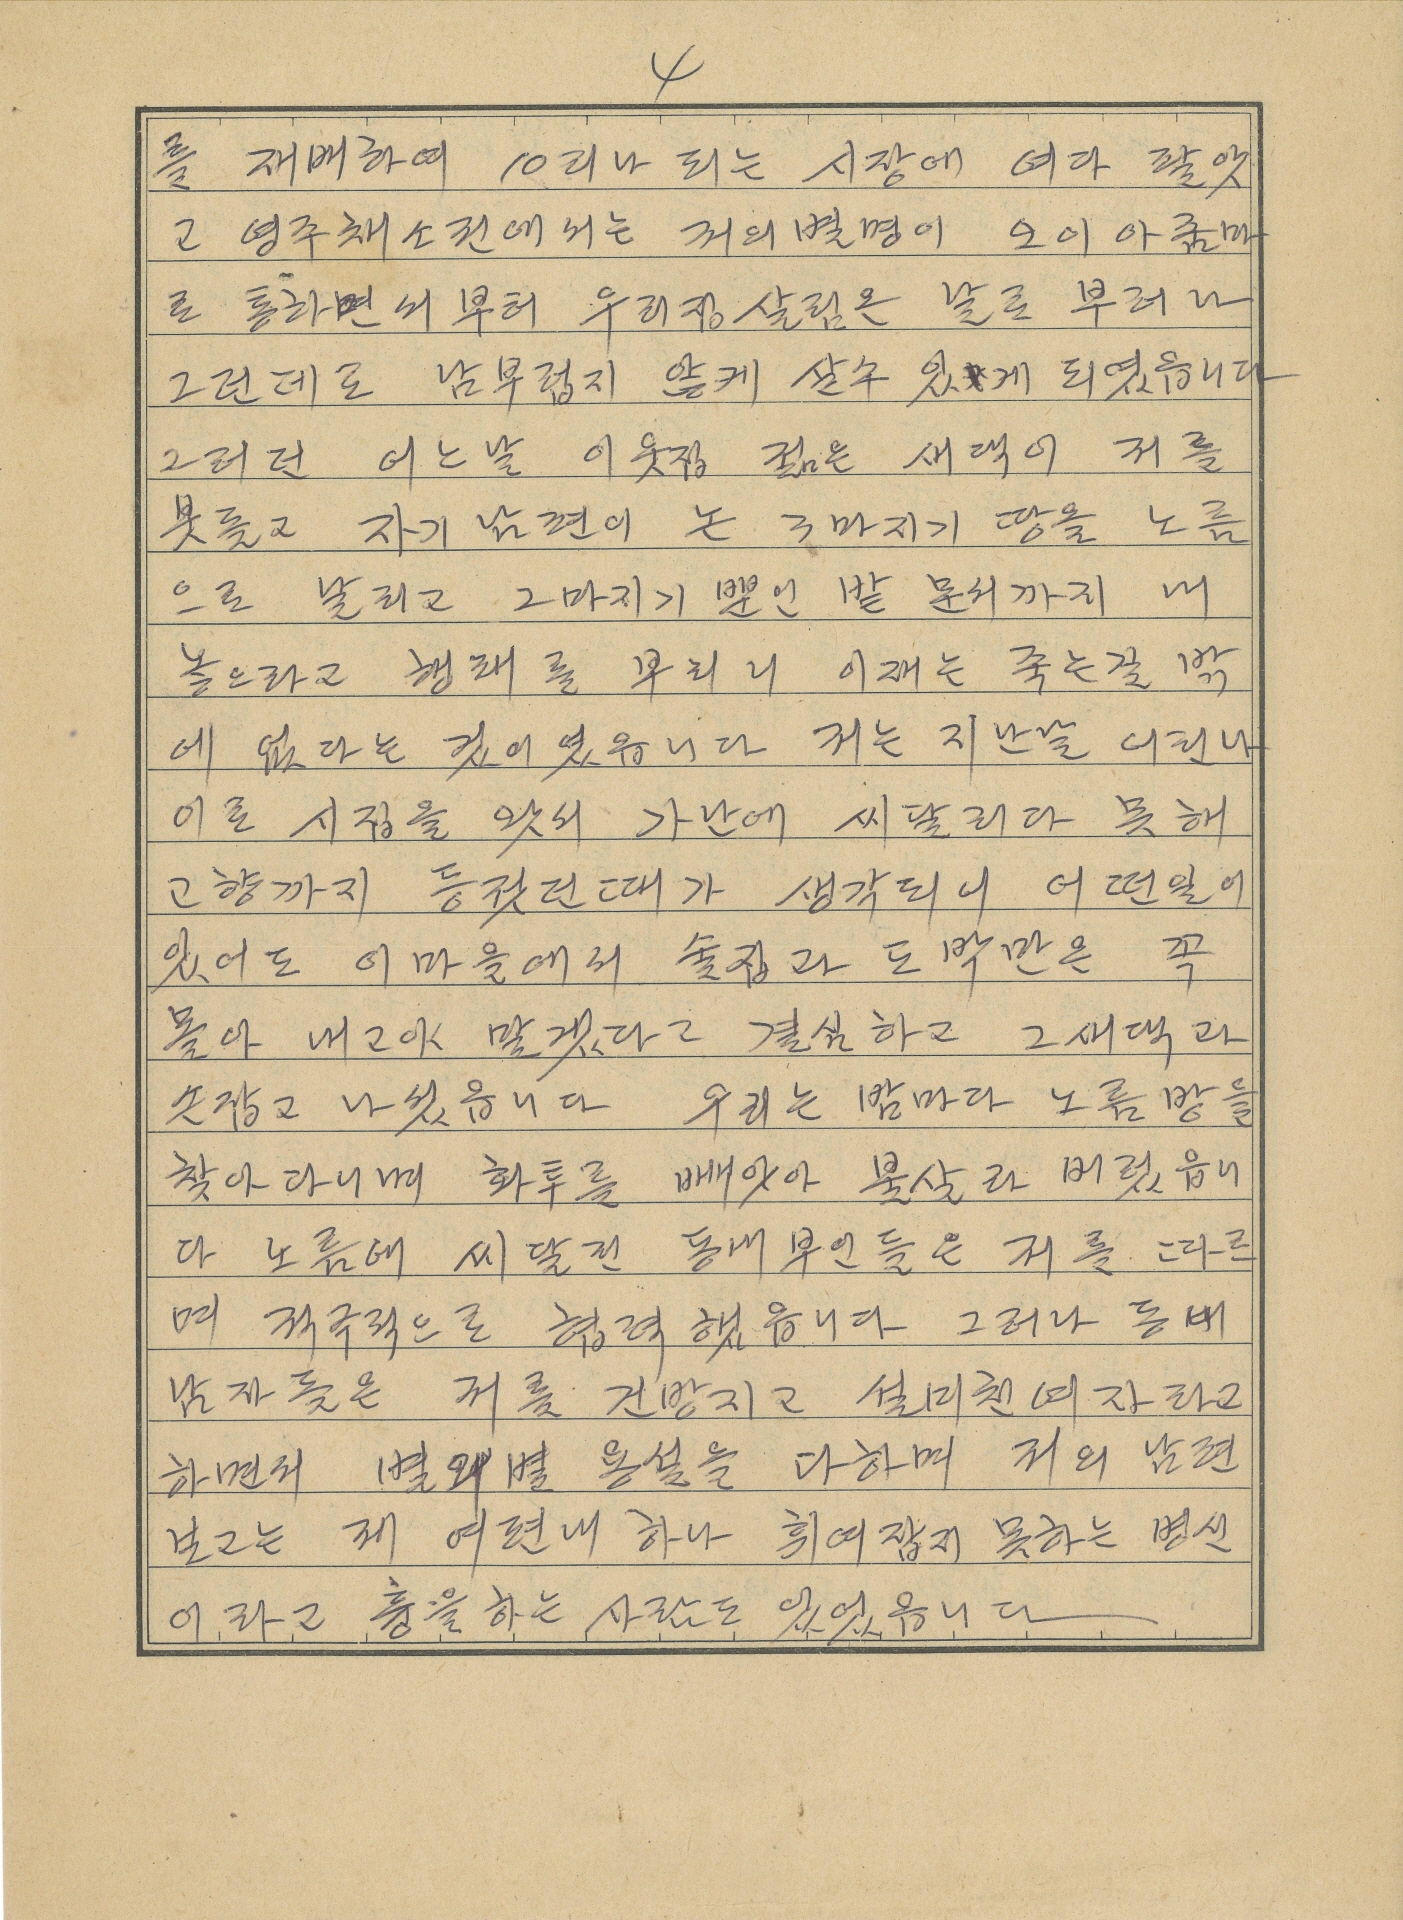 4
를 재배하여 10리나 되는 시장에 여다 팔앗
고 영주채소전에서는 저의별명이 오이아줌마
로 통하면서부터 우리집살림은 날로 부러나
그런데로 남부럽지 않게 살수 있게 되였읍니다
그러던 어느날 이웃집 젊은 새댁이 저를
붓들고 자기남편이 논 3마지기 땅을 노름
으로 날리고 2마지기 뿐인 밭 문서까지 내
놓으라고 행패를 부리니 이재는 죽는길 밖
에 없다는 것이였읍니다 저는 지난날 어린나
이로 시집을 왓서 가난에 씨달리다 못해
고향까지 등젓던때가 생각되니 어떤일이
있어도 이마을에서 술집과 도박만은 꼭
몰아 내고야 말겠다고 결심하고 그새댁과
손잡고 나섰읍니다 우리는 밤마다 노름방을
찾아다니며 화투를 빼앗아 불살라 버렸읍니
다 노름에 씨달린 동내부인들은 저를 따르
며 적극적으로 협력했읍니다 그러나 동내
남자들은 저를 건방지고 설미친여자라고
하면서 별의별 욕설을 다하며 저의 남편
보고는 제 여편내 하나 휘여잡지 못하는 병신
이라고 흉을하는 사람도 있었읍니다